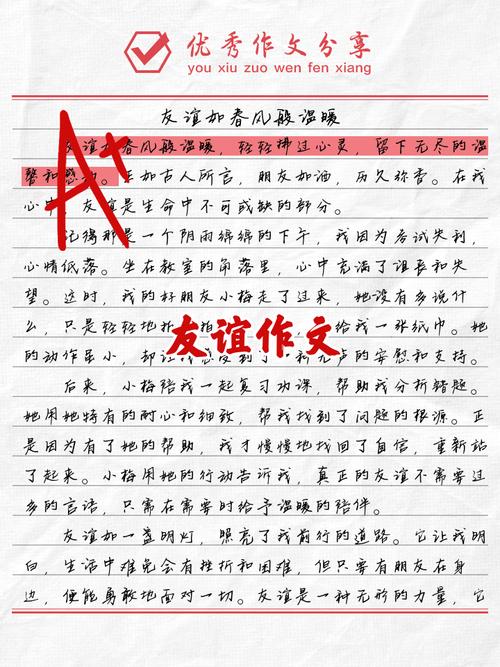 优秀作文分享
you xiu zuo wen fen xiang
友谊如春风般温暖
友谊如春风般温暖,轻轻拂过心灵,留下无尽的温
馨和感动。正如古人所言,朋友如酒,历久弥香。在我
心中,友谊是生命中不可或缺的部分。
记得那是一个阴雨绵绵的下午,我因为考试失利,
心情低落。坐在教室的角落里,心中充满了沮丧和失
望。这时,我的好朋友小梅走了过来,她没有多说什
么,只是轻轻地拍 拍 给我一张纸巾。她
的动作虽小,却让我感受到了一种无声的安慰和支持。
友谊作文
A+
后来,小梅陪我一起复习功课,帮助我分析错题。
她用她特有的耐心和细致,帮我找到了问题的根源。正
是因为有了她的帮助,我才慢慢地找回了自信,重新站
了起来。小梅用她的行动告诉我,真正的友谊不需要过
多的言语,只需在需要时给予温暖的陪伴。
友谊如一盏明灯,照亮了我前行的道路。它让我明
白,生活中难免会有挫折和困难,但只要有朋友在身
边,便能勇敢地面对一切。友谊是一种无形的力量,它